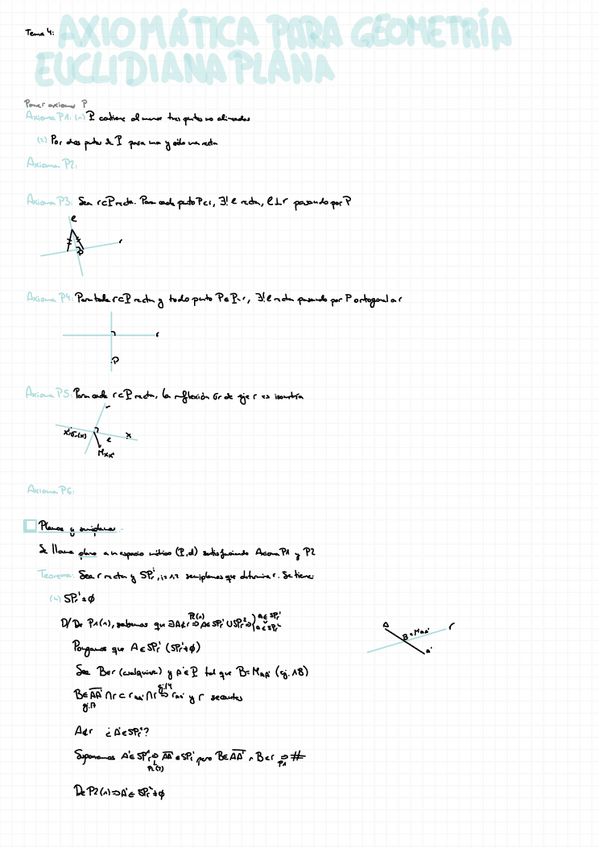 Tema 4: AXIOMÁTICA PARA GEOMETRÍA
EUCLIDIANA PLANA
Poner axiomas P
Axioma P1: (1) P contiene al menos tres puntos no alineados
(2) Por dos puntos de P pasa una y sólo una recta
Axioma P2:
Axioma P3: Sea r⊂P recta. Para cada punto P∈r, ∃! l recta, l⊥r pasando por P
l
r
P
Axioma P4: Para toda r⊂P recta y todo punto P∈P-r, ∃! l recta pasando por P ortogonal a r
r
P
Axioma P5: Para cada r⊂P recta, la reflexión σr de eje r es isometría
r
x'=σr(x) l x
Mxx'
Axioma P6:
Planos y semiplanos
Se llama plano a un espacio métrico (P,d) satisfaciendo Axioma P1 y P2
Teorema: Sea r recta y SPrⁱ, i=1,2 semiplanos que determina r. Se tiene:
(1) SPrⁱ≠∅
D/ De P1(1), sabemos que ∃A∉r ⇒ A∈SPr¹∪SPr²
Pongamos que A∈SPr¹ (SPr¹≠∅)
Sea B∈r (cualquiera) y A'∈P tal que B=MAA' (ej. 18)
B∈AA'∩r⊂rAA'∩r ⇒ rAA' y r secantes
ej.17
A∉r ¿A'∈SPr²?
Supongamos A'∈SPr¹ ⇒ AA'∈SPr¹ pero B∈AA' ∧ B∈r ⇒ #
De P2(1)⇒A'∈SPr²≠∅
A
B=MAA'
r
A'